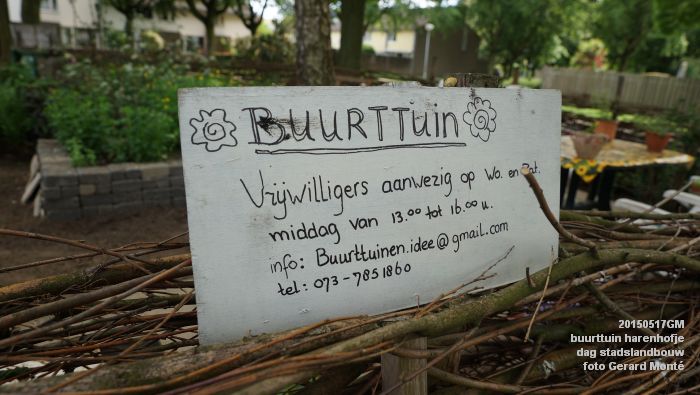 BUURTTuin
Vrijwilligers aanwezig op Wo. en Zat.
middag van 13.00 tot 16.00 u.
info: Buurttuinen.idee@gmail.com
tel: 073-7851860
20150517GM
buurttuin harenhofje
dag stadslandbouw
foto Gerard Monté